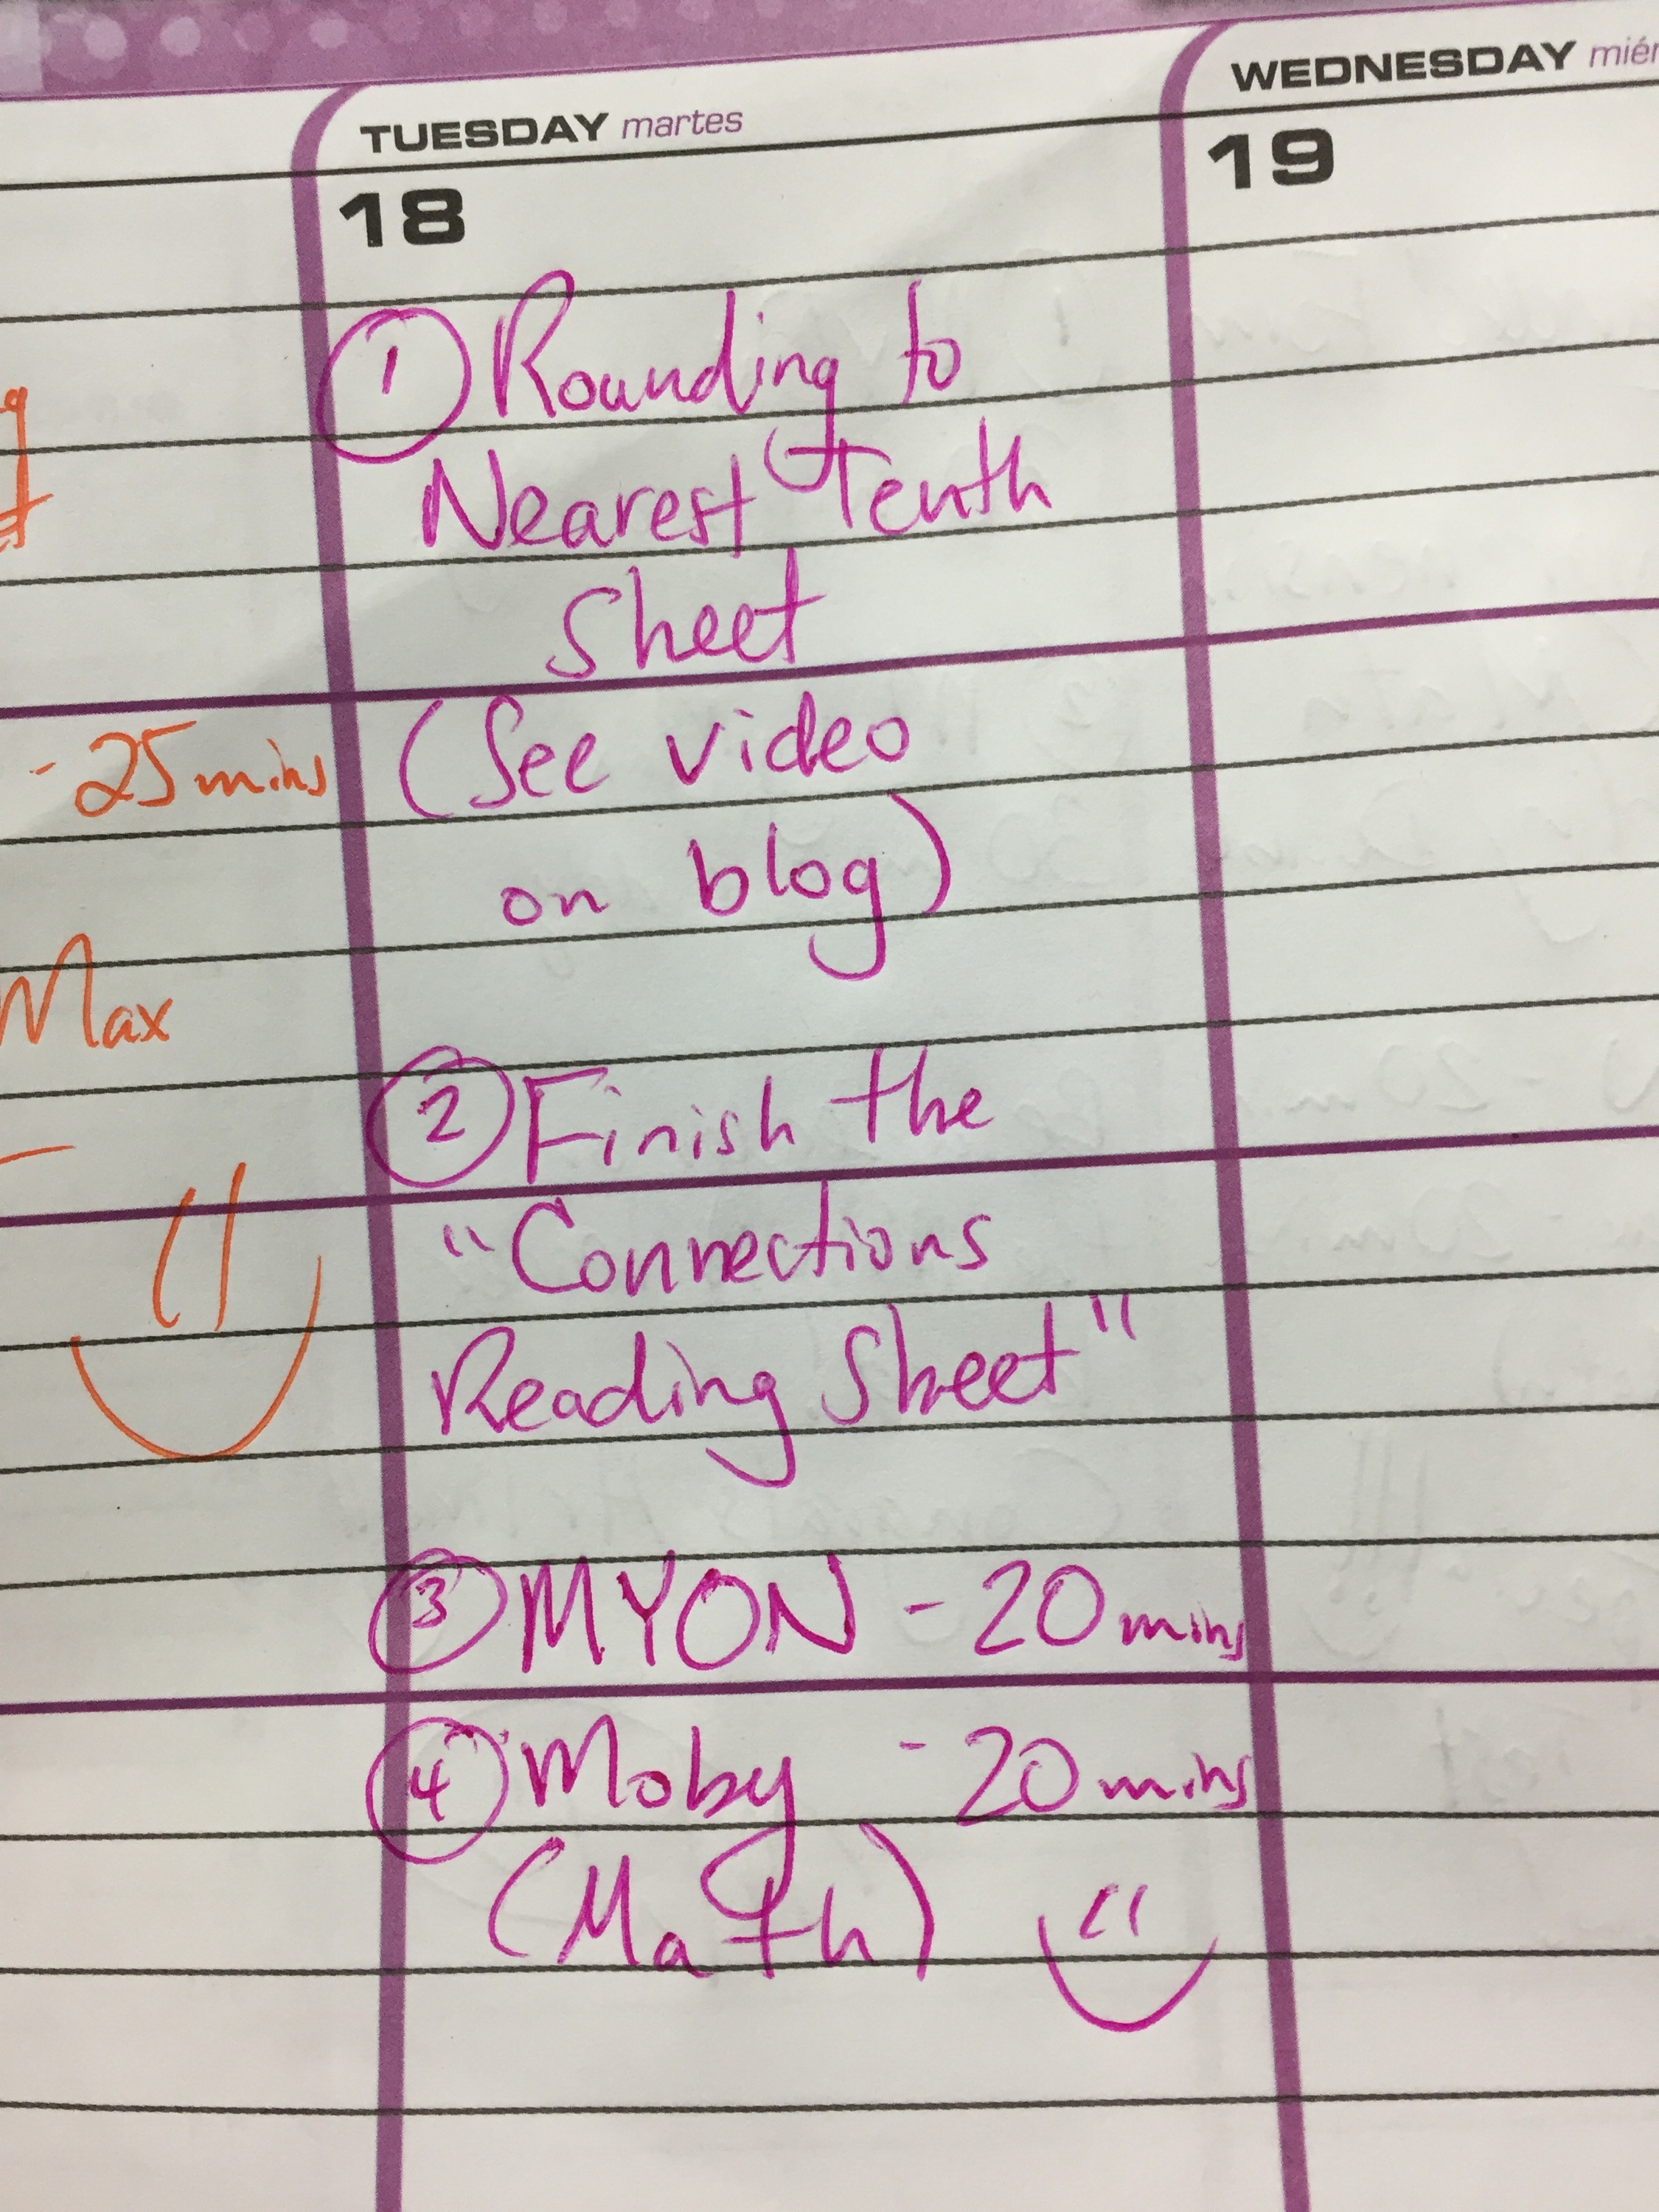 TUESDAY martes
WEDNESDAY
18
19
① Rounding to
Nearest Tenth
Sheet
(See video
on blog)
② Finish the
"Connections
Reading Sheet"
③ MYON - 20 mins
④ Moby - 20 mins
(Math)
- 25 mins
Max